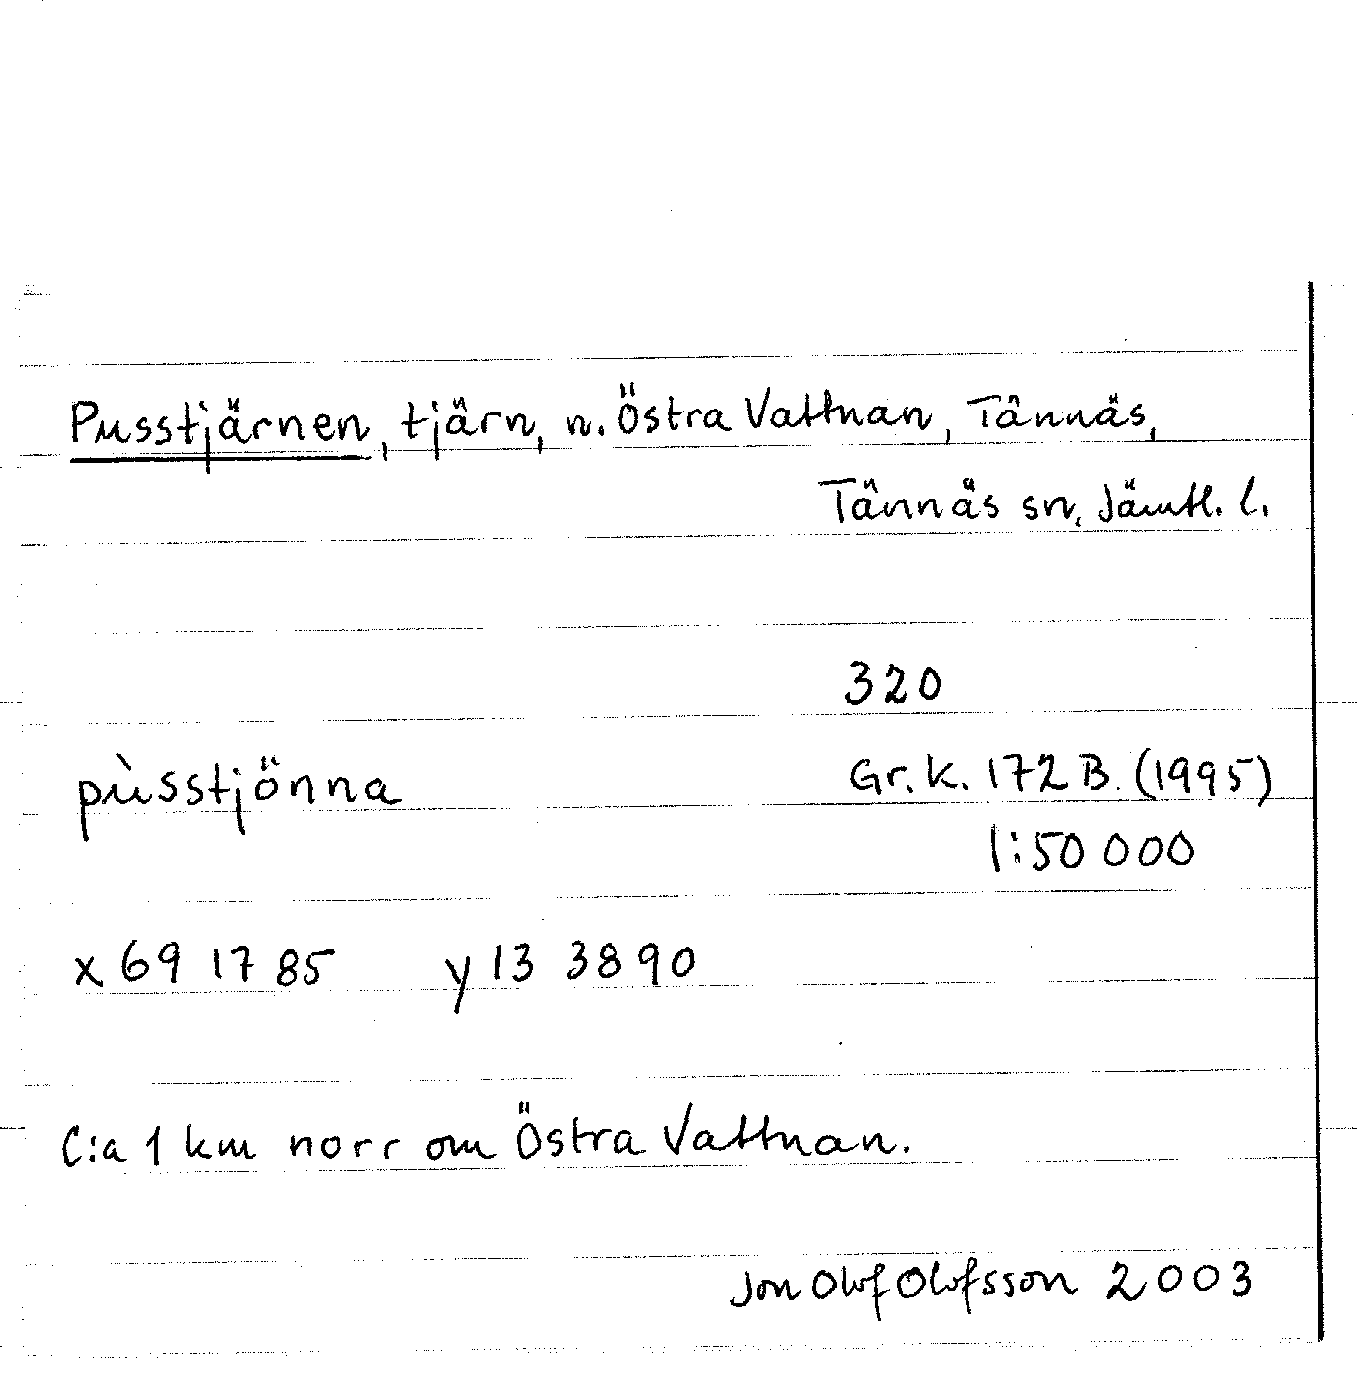 Pusstjärnen, tjärn, n. Östra Vattnan, Tännäs,
Tännäs sn, Jämtl. l.
320
pùsstjönna
Gr. k. 172 B. (1995)
1:50 000
x 69 17 85 y 13 3890
C:a 1 km norr om Östra Vattnan.
Jon Olof Olofsson 2003